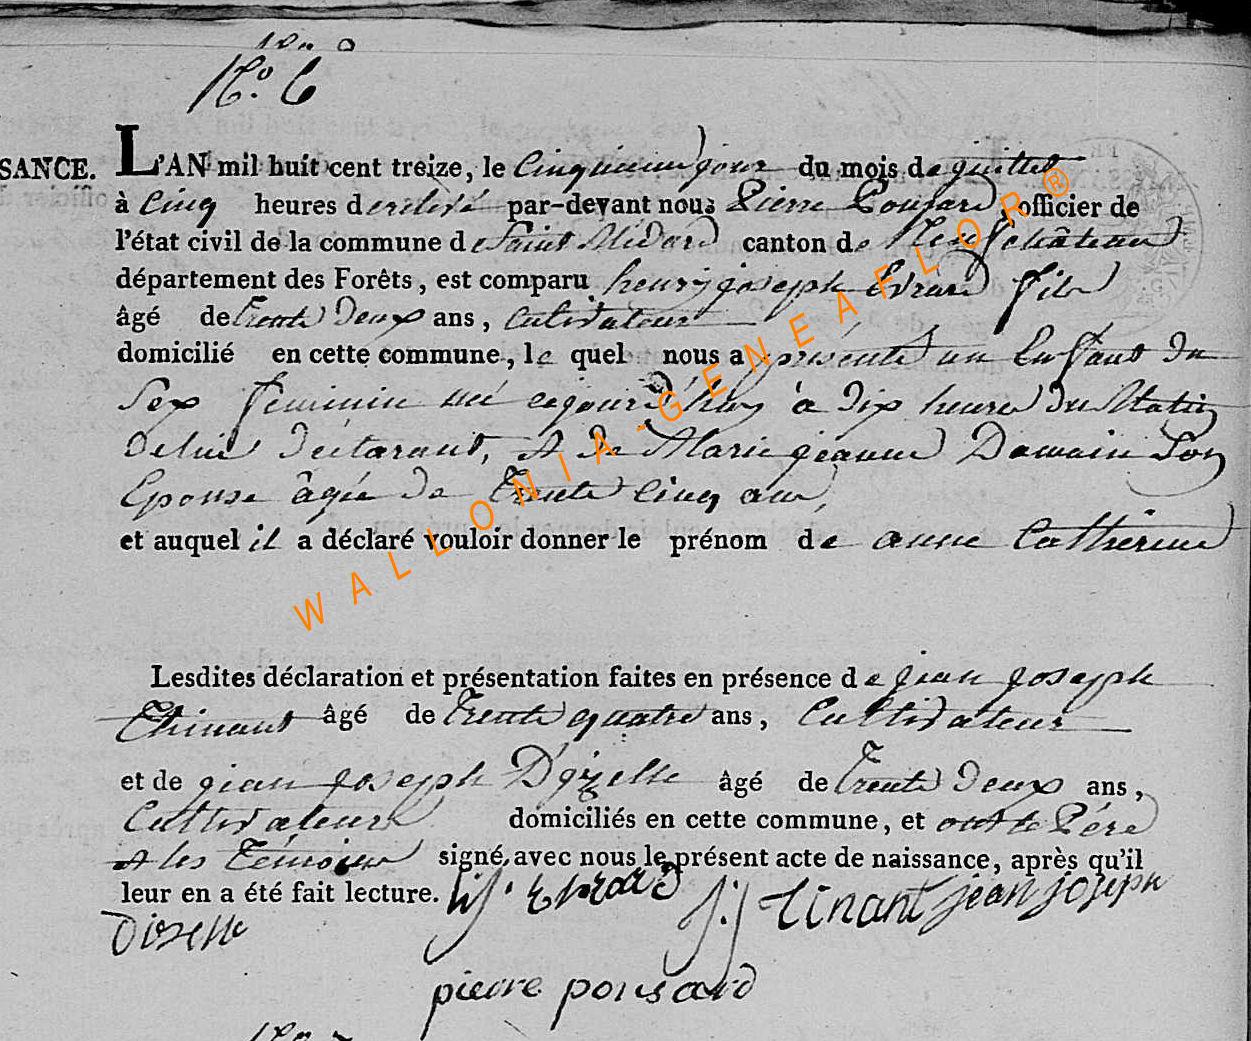 N.° 6
SANCE. L'AN mil huit cent treize, le Cinquieme jour du mois de juillet
à Cinq heures de relevé par-devant nous Pierre Ponsard, officier de
l'état civil de la commune de Saint Médard canton de Neufchâteau
département des Forêts, est comparu henry joseph Evrard fils
âgé de trente Deux ans, Cultivateur
domicilié en cette commune, le quel nous a présenté un Enfant du
Sex feminin né aujourd'huy à dix heures du Matin
De lui Déclarant, et de Marie jeanne Domain Son
Epouse âgée de trente Cinq ans,
et auquel il a déclaré vouloir donner le prénom de anne Catherine
Lesdites déclaration et présentation faites en présence de jean joseph
Thinant âgé de trente quatre ans, Cultivateur
et de jean joseph D'ozelle âgé de trente Deux ans,
Cultivateur domiciliés en cette commune, et ont le Pére
et les Témoins signé avec nous le présent acte de naissance, après qu'il
leur en a été fait lecture. h.j. Evrard j.j tinant jean joseph
Diozelle
pierre ponsard
WALLONIA-GENEAFLOR®